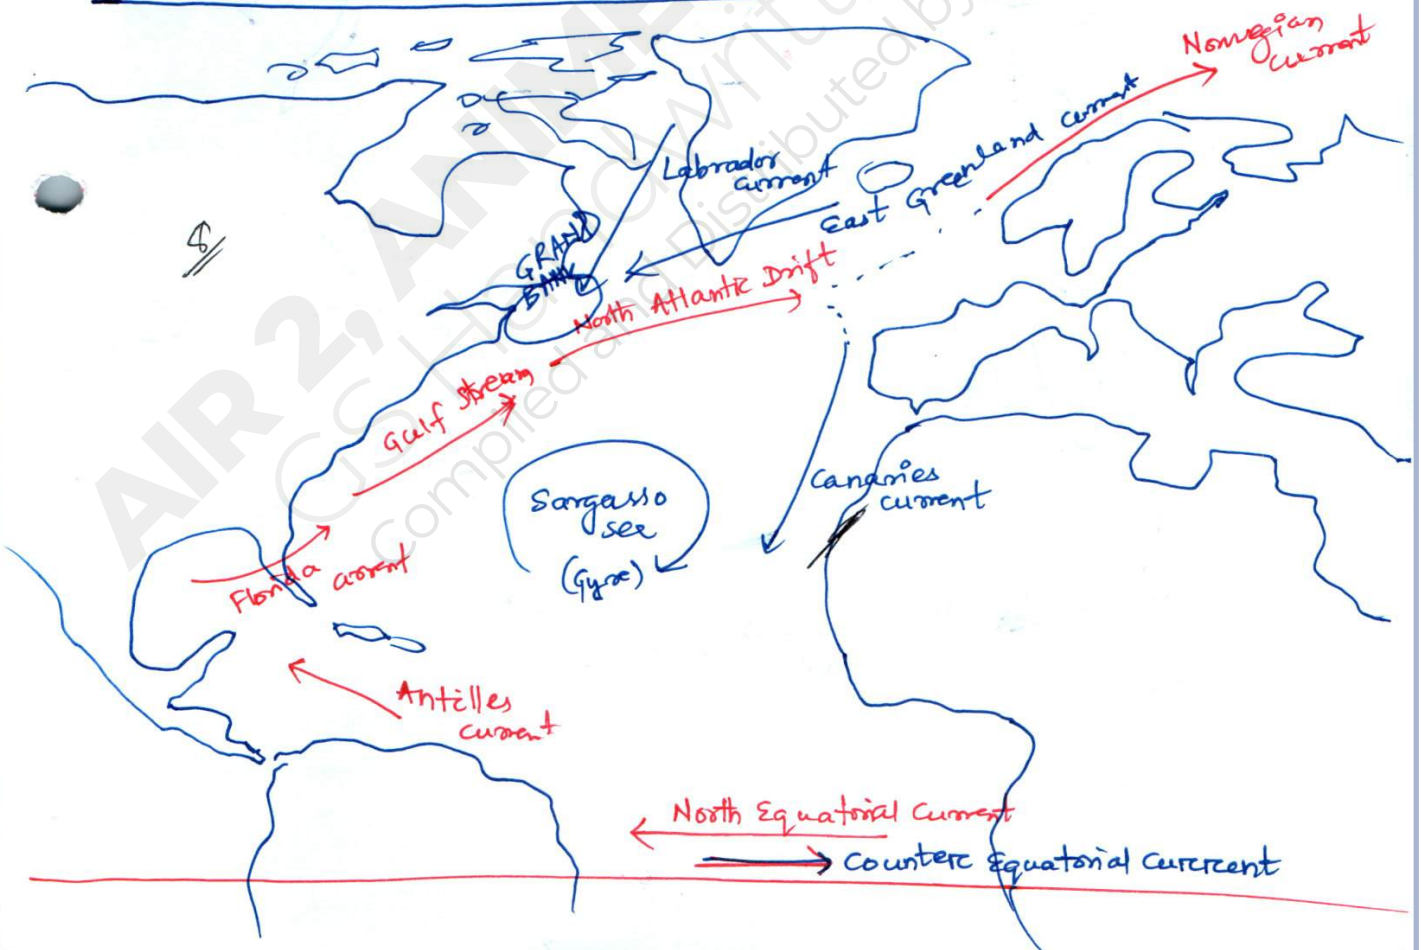 Norwegian
current
Labrador
current
East Greenland current
GRAND
BANK
North Atlantic Drift
Gulf Stream
Sargasso
sea
(Gyre)
Canaries
current
Florida current
Antilles
current
North Equatorial Current
Counter Equatorial Current
8
AIR 2, ANIME
GS Handwritt
Compiled and Distributed by